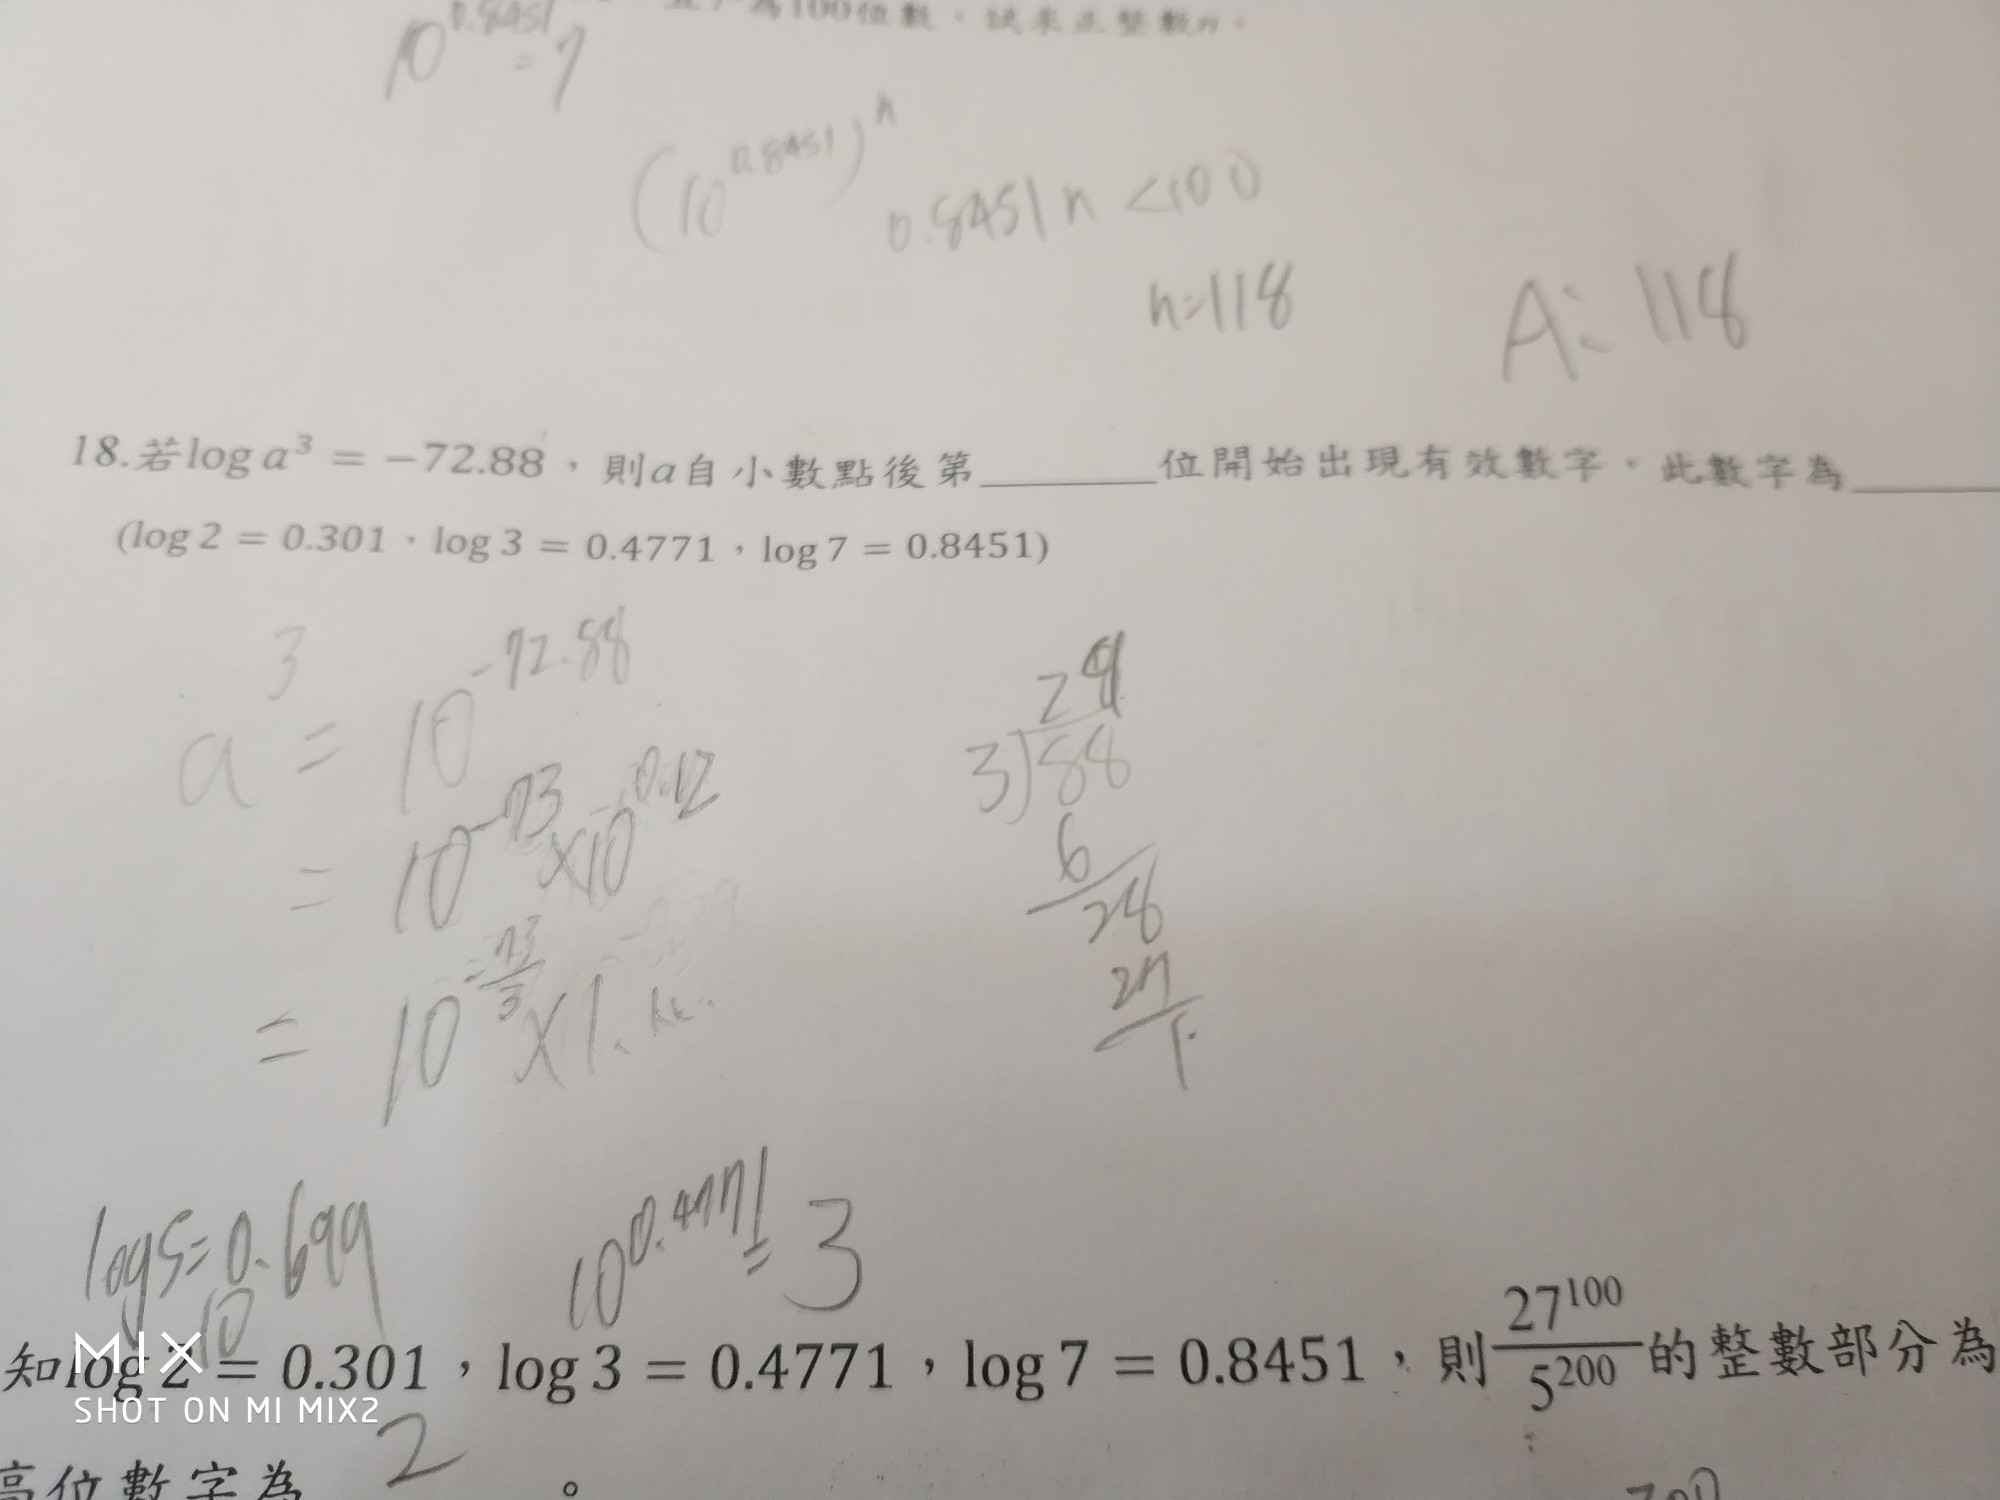 為100位數，試求正整數n。
10^0.8451 = 7
(10^0.8451)^n
0.8451n < 100
n=118
A: 118
18.若log a³ = −72.88，則a自小數點後第______位開始出現有效數字，此數字為______
(log 2 = 0.301，log 3 = 0.4771，log 7 = 0.8451)
a^3 = 10^-72.88
= 10^-73 ×10^0.12
= 10^-73/3 ×1.
29
3)88
6
28
27
1
log5=0.699
10
10^0.4771 = 3
知log 2 = 0.301，log 3 = 0.4771，log 7 = 0.8451，則27^100/5^200的整數部分為
高位數字為 2 。
MIX
SHOT ON MI MIX2